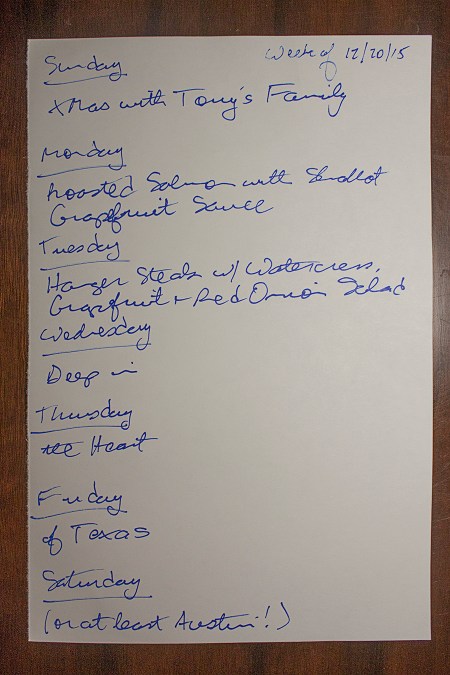 Sunday Week of 12/20/15
XMas with Tony's Family
Monday
Roasted Salmon with Shallot
Grapefruit Sauce
Tuesday
Hanger Steak w/ Watercress,
Grapefruit + Red Onion Salad
Wednesday
Deep in
Thursday
the Heart
Friday
of Texas
Saturday
(or at least Austin!)